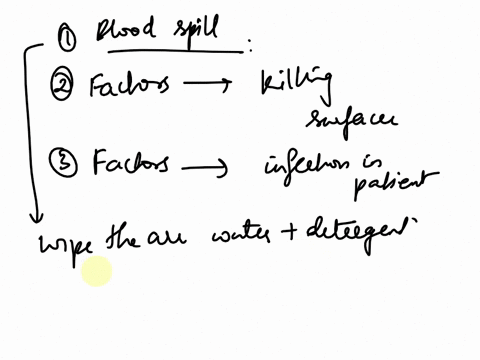 ① Blood spill :
② Factors → killing
surfaces
③ Factors → infection in
patient
wipe the are water + detergent